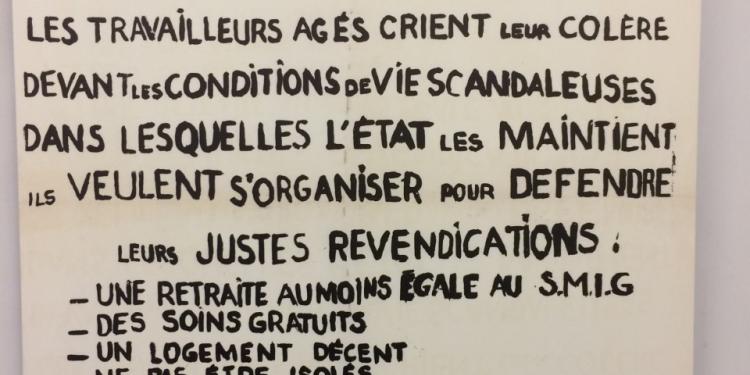 LES TRAVAILLEURS AGÉS CRIENT LEUR COLÈRE
DEVANT LES CONDITIONS DE VIE SCANDALEUSES
DANS LESQUELLES L'ÉTAT LES MAINTIENT
ILS VEULENT S'ORGANISER POUR DEFENDRE
LEURS JUSTES REVENDICATIONS :
– UNE RETRAITE AU MOINS ÉGALE AU S.M.I.G
– DES SOINS GRATUITS
– UN LOGEMENT DÉCENT
– NE PAS ÊTRE ISOLÉS